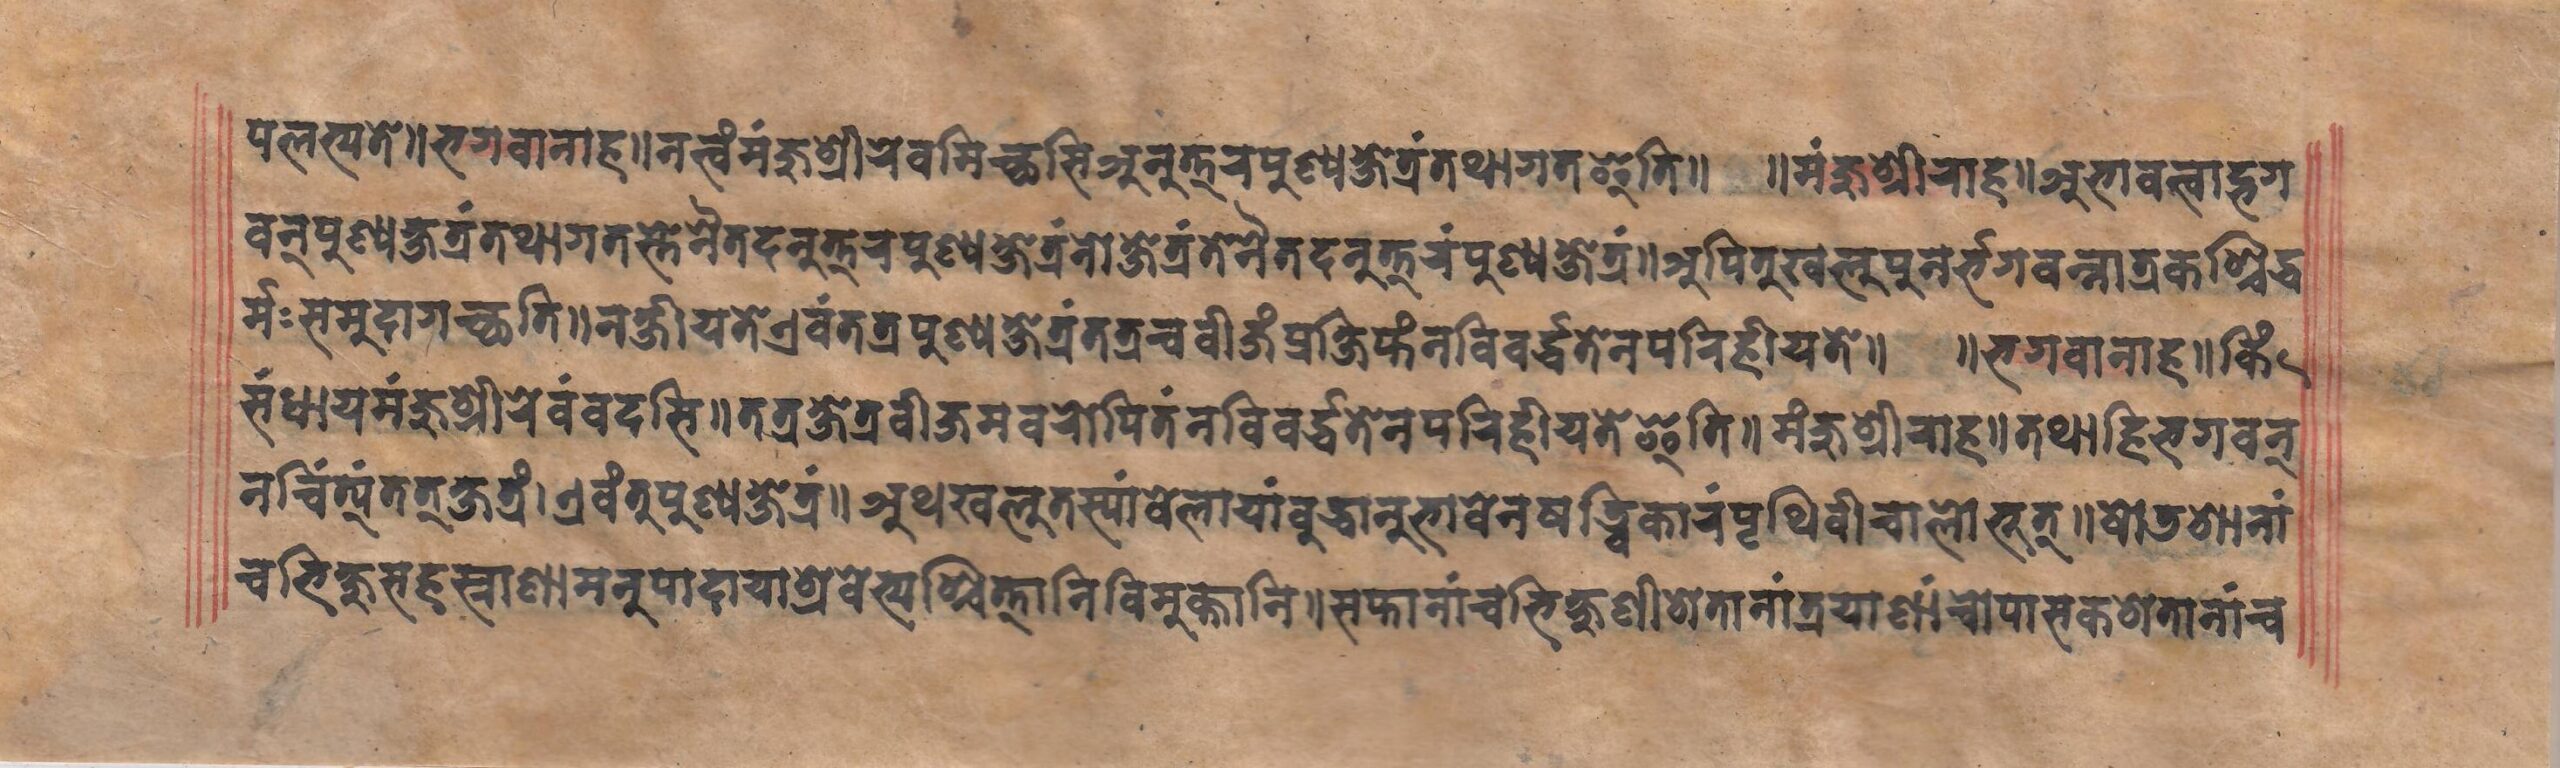 पलभ्यते॥भगवानाह॥नत्वंमंजुश्रीरेवमिच्छसिअनुत्तरपुण्यक्षेत्रंतथागतइति॥ ॥मंजुश्रीराह॥अभावत्वाद्भग
वन्पुण्यक्षत्रंतथागतस्तेनैतदनुत्तरपुण्यक्षेत्रंनोक्षेत्रंतेनैतदनुत्तरंपुण्यक्षेत्रं॥अपितुखलुपुनर्भगवन्नात्रकश्चिद्ध
र्मःसमुदागच्छति॥नक्षीयतेएवंतत्रपुण्यक्षेत्रंतत्रचवीजंप्रक्षिप्तंनविवर्द्धतेनपरिहीयते॥ ॥भगवानाह॥किं
संधायमंजुश्रीरेवंवदसि॥तत्रक्षेत्रवीजमवरोपितंनविवर्द्धतेनपरिहीयतेइति॥मंजुश्रीराह॥तथाहिभगवन्
नचिंत्यंतत्क्षत्रं।एवंतुपुण्यक्षेत्रं॥अथखलुतस्यांवेलायांवुद्धानुभावेनषड्विकारंपृथिवीचालोभूत्॥षोडशानां
चभिक्षुसहस्राणामनुपादायाश्रवेभ्यश्चित्तानिविमुक्तानि॥सप्तानांचभिक्षुणीशतानांत्रयाणांचोपासकशतानांच